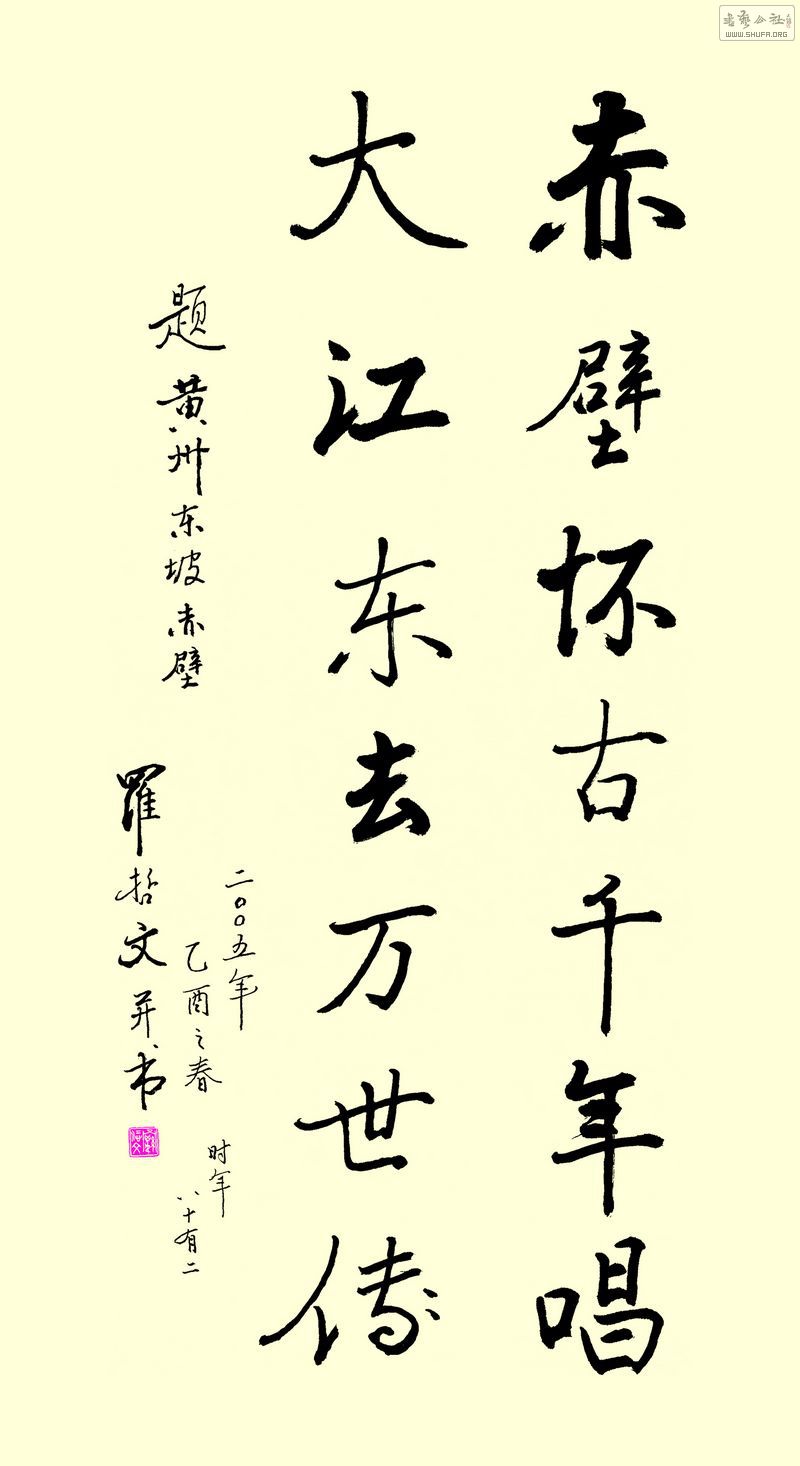 赤壁怀古千年唱
大江东去万世传
题黄州东坡赤壁
二〇〇五年
乙酉之春
罗哲文并书
时年
八十有二
书艺公社
WWW.SHUFA.ORG